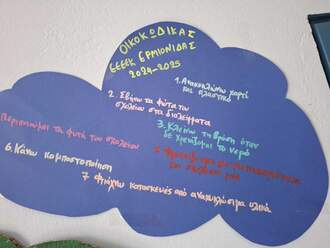 ΟΙΚΟΚΩΔΙΚΑΣ
ΕΕΕΕΚ ΕΡΜΙΟΝΙΔΑΣ
2024-2025
1. Ανακυκλώνω χαρτί
και πλαστικό
2. Σβήνω τα φώτα του
σχολείου στα διαλείμματα
3. Κλείνω τη βρύση όταν
δε χρειάζομαι το νερό
Περιποιούμαι τα φυτά του σχολείου
6. Κάνω κομποστοποίηση
7. Φτιάχνω κατασκευές από ανακυκλώσιμα υλικά